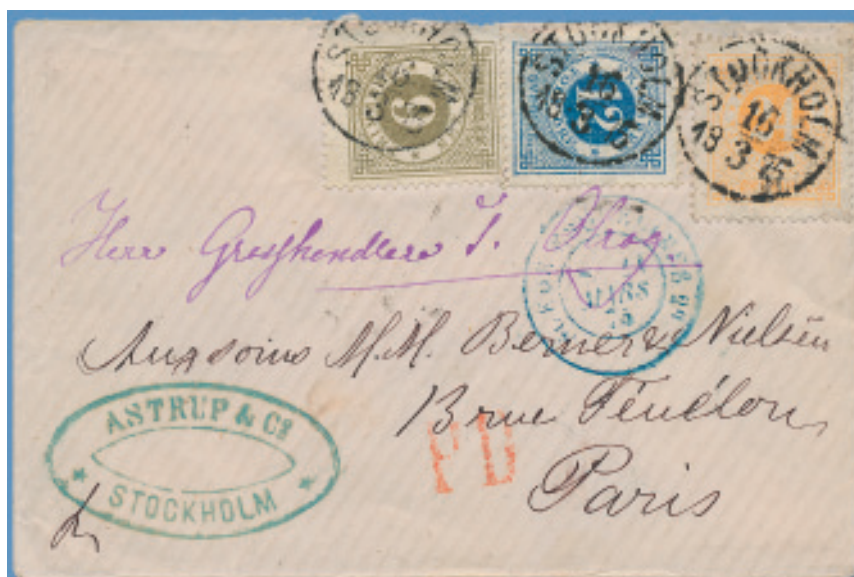 STOCKHOLM
6
STOCKHOLM
16
3
12
STOCKHOLM
16
18 3 75
Herr Grosshendlere
MARS
75
Aux soins M.M. Berner & Nielsen
3 rue Fénélon
Paris
PD
ASTRUP & Co
STOCKHOLM